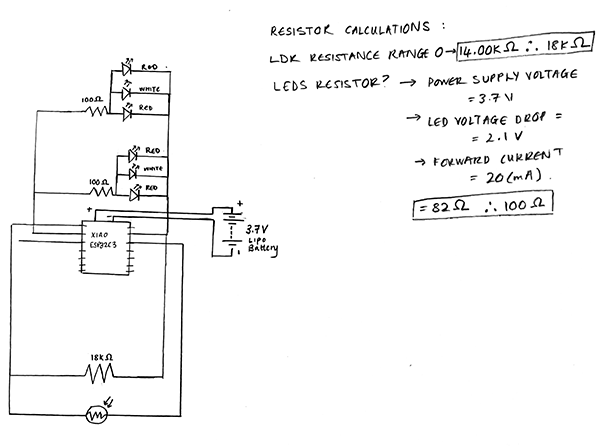 RESISTOR CALCULATIONS :
LDR RESISTANCE RANGE 0→ 14.00KΩ ∴ 18KΩ
LEDS RESISTOR? → POWER SUPPLY VOLTAGE
= 3.7V
→ LED VOLTAGE DROP =
= 2.1V
→ FORWARD CURRENT
= 20(mA).
= 82Ω ∴ 100Ω
RED
WHITE
100Ω
RED
RED
WHITE
100Ω
RED
+
+
XIAO
ESP32C3
3.7V
LIPO
Battery
-
18KΩ